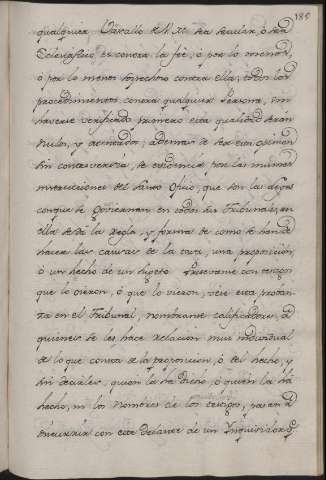 185
qualquier Vasallo de V. M. sea secular, ó sea
Eclesiastico es contra la fè, ó por lo menor,
ó por lo menos sospechoso contra ella, todos los
procedimientos contra qualquier Persona, sin
haverse verificado primero esta qualidad seran
nulos, y atentados, ademas de ser esta opinion
sin controversia, se evidencia por las mismas
instrucciones del Santo Oficio, que son las Leyes
conque se Goviernan en todos sus Tribunales, en
ellas se dá la regla, y forma de como se han de
hacer las causas de la toca, una proposición
ó un hecho de un sugeto Presevante con testigos
que lo oieron, ó que lo vieron, vése esta proban-
za en el Tribunal, nombranse calificadores, á
quienes se les hace relacion mui individual
de lo que consta de la proposicion, ó del hecho, y
sin decirles, quien la ha dicho, ó quien la ha
hecho, ni los nombres de los testigos, pasan á
discurrir con este delante de un Inquisidor